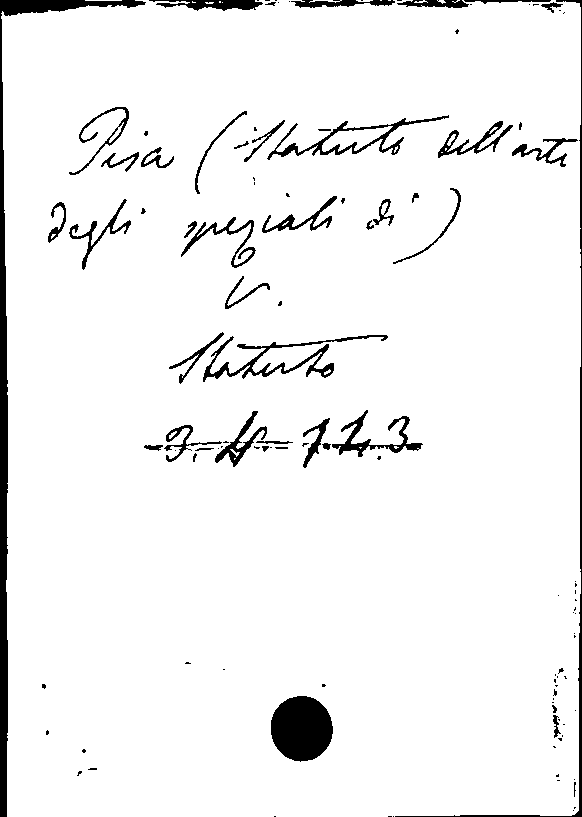 Pisa (Statuto dell'arte
degli speziali di)
V.
Statuto